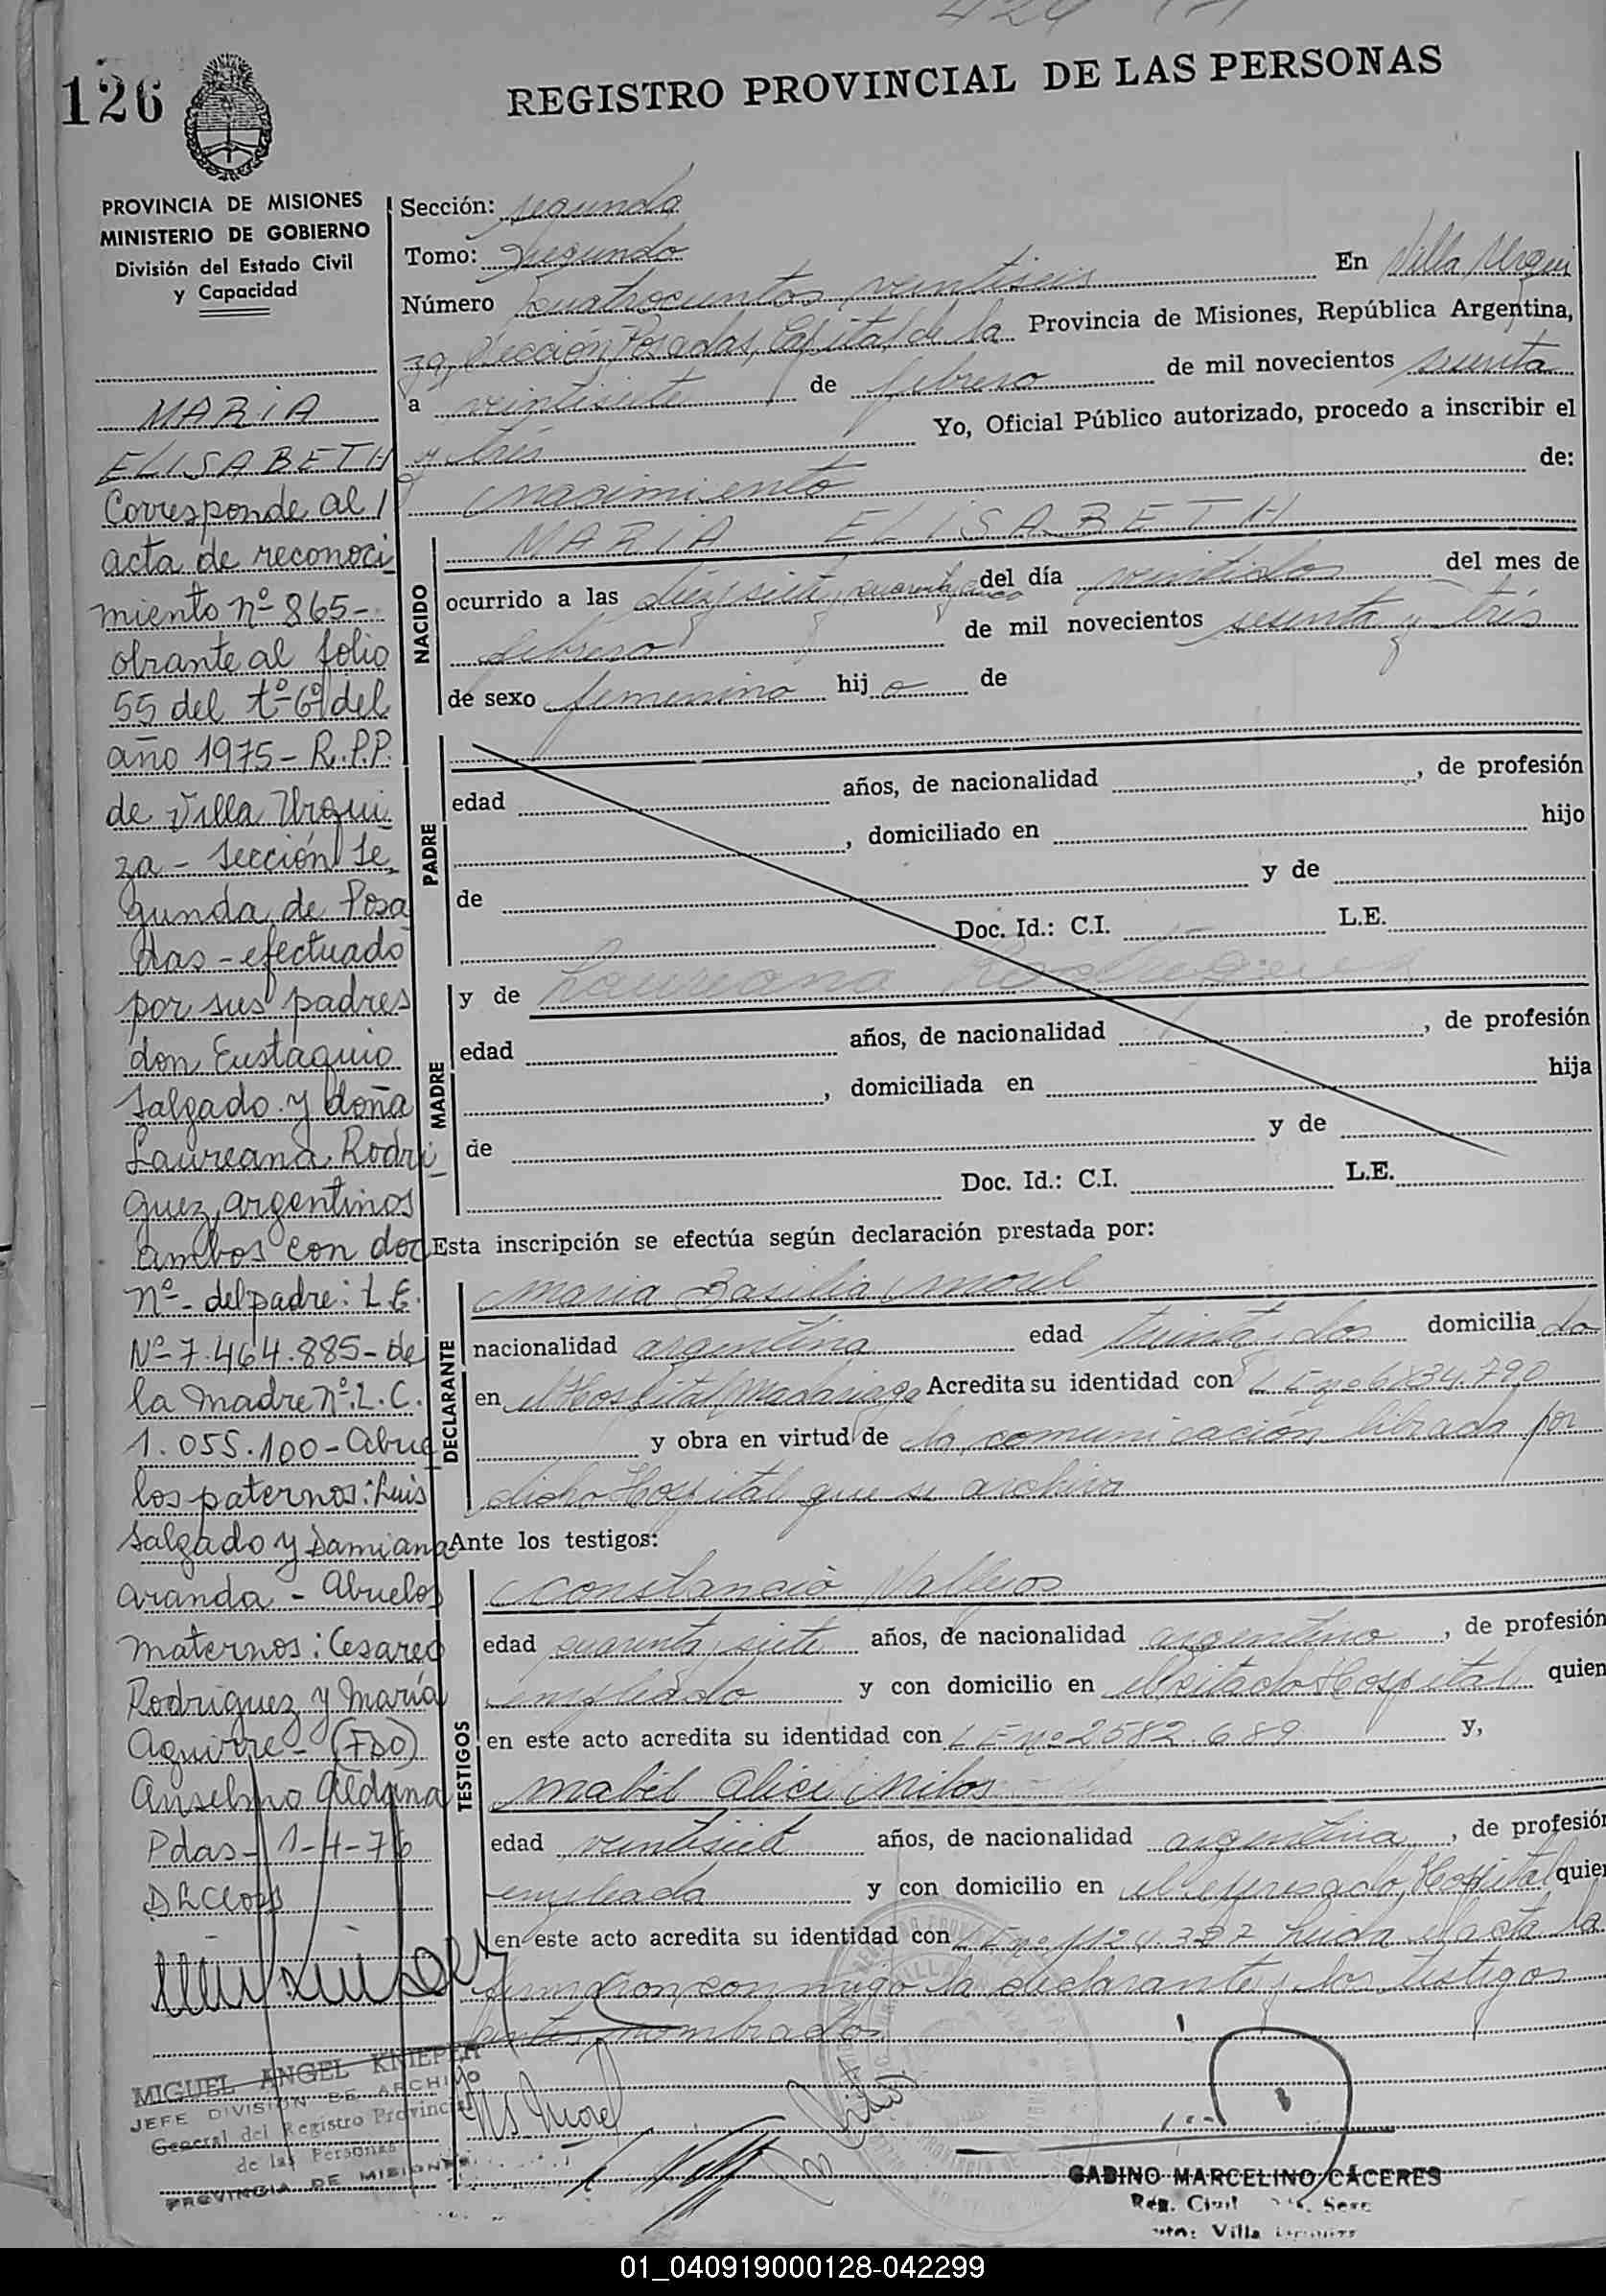 126
REGISTRO PROVINCIAL DE LAS PERSONAS
PROVINCIA DE MISIONES
MINISTERIO DE GOBIERNO
División del Estado Civil
y Capacidad
MARIA
ELISABETH
Corresponde al
acta de reconoci
miento nº 865-
obrante al folio
55 del tº 6º del
año 1975 - R.P.P.
de Villa Urqui
za - Sección Se
gunda de Posa
das - efectuado
por sus padres
don Eustaquio
Salgado y doña
Laureana Rodri
guez, argentinos
ambos con doc
nº - del padre: L.E.
Nº 7.464.885 - de
la madre nº L.C.
1.055.100 - Abue
los paternos: Luis
Salgado y Damiana
Aranda - Abuelos
maternos: Cesareo
Rodriguez y María
Aguirre - (FDO)
Anselmo Aldana
Pdas - 1-4-76
MIGUEL ANGEL KNIEPER
JEFE DIVISION DE ARCHIVO
General del Registro Provincial
de las Personas
PROVINCIA DE MISIONES
Sección: segunda
Tomo: segundo
Número cuatrocientos veintiseis En Villa Urqui
za, Sección Posadas, Capital de la Provincia de Misiones, República Argentina,
a veintisiete de febrero de mil novecientos sesenta
y tres Yo, Oficial Público autorizado, procedo a inscribir el
nacimiento de:
NACIDO
MARIA ELISABETH
ocurrido a las diez y siete, cuarenta y cinco del día veintidos del mes de
febrero de mil novecientos sesenta y tres
de sexo femenino hij a de
PADRE
edad años, de nacionalidad , de profesión
, domiciliado en hijo
de y de
Doc. Id.: C.I. L.E.
MADRE
y de Laureana Rodriguez
edad años, de nacionalidad , de profesión
, domiciliada en hija
de y de
Doc. Id.: C.I. L.E.
Esta inscripción se efectúa según declaración prestada por:
DECLARANTE
Maria Basilia Morel
nacionalidad argentina edad treinta y dos domicilia da
en el Hospital Madariaga Acredita su identidad con
y obra en virtud de la comunicación librada por
dicho Hospital que se archiva
Ante los testigos:
TESTIGOS
Constancio Vallejos
edad cuarenta y siete años, de nacionalidad argentino, de profesión
empleado y con domicilio en el citado Hospital quien
en este acto acredita su identidad con L E nº 2582.689 y,
Mabel Alice Milos
edad veintisiete años, de nacionalidad argentina, de profesión
empleada y con domicilio en el expresado Hospital quien
en este acto acredita su identidad con Leida el acta la
firmaron conmigo la declarante y los testigos
antes nombrados
GABINO MARCELINO CÁCERES
Reg. Civil
Villa
01_040919000128-042299